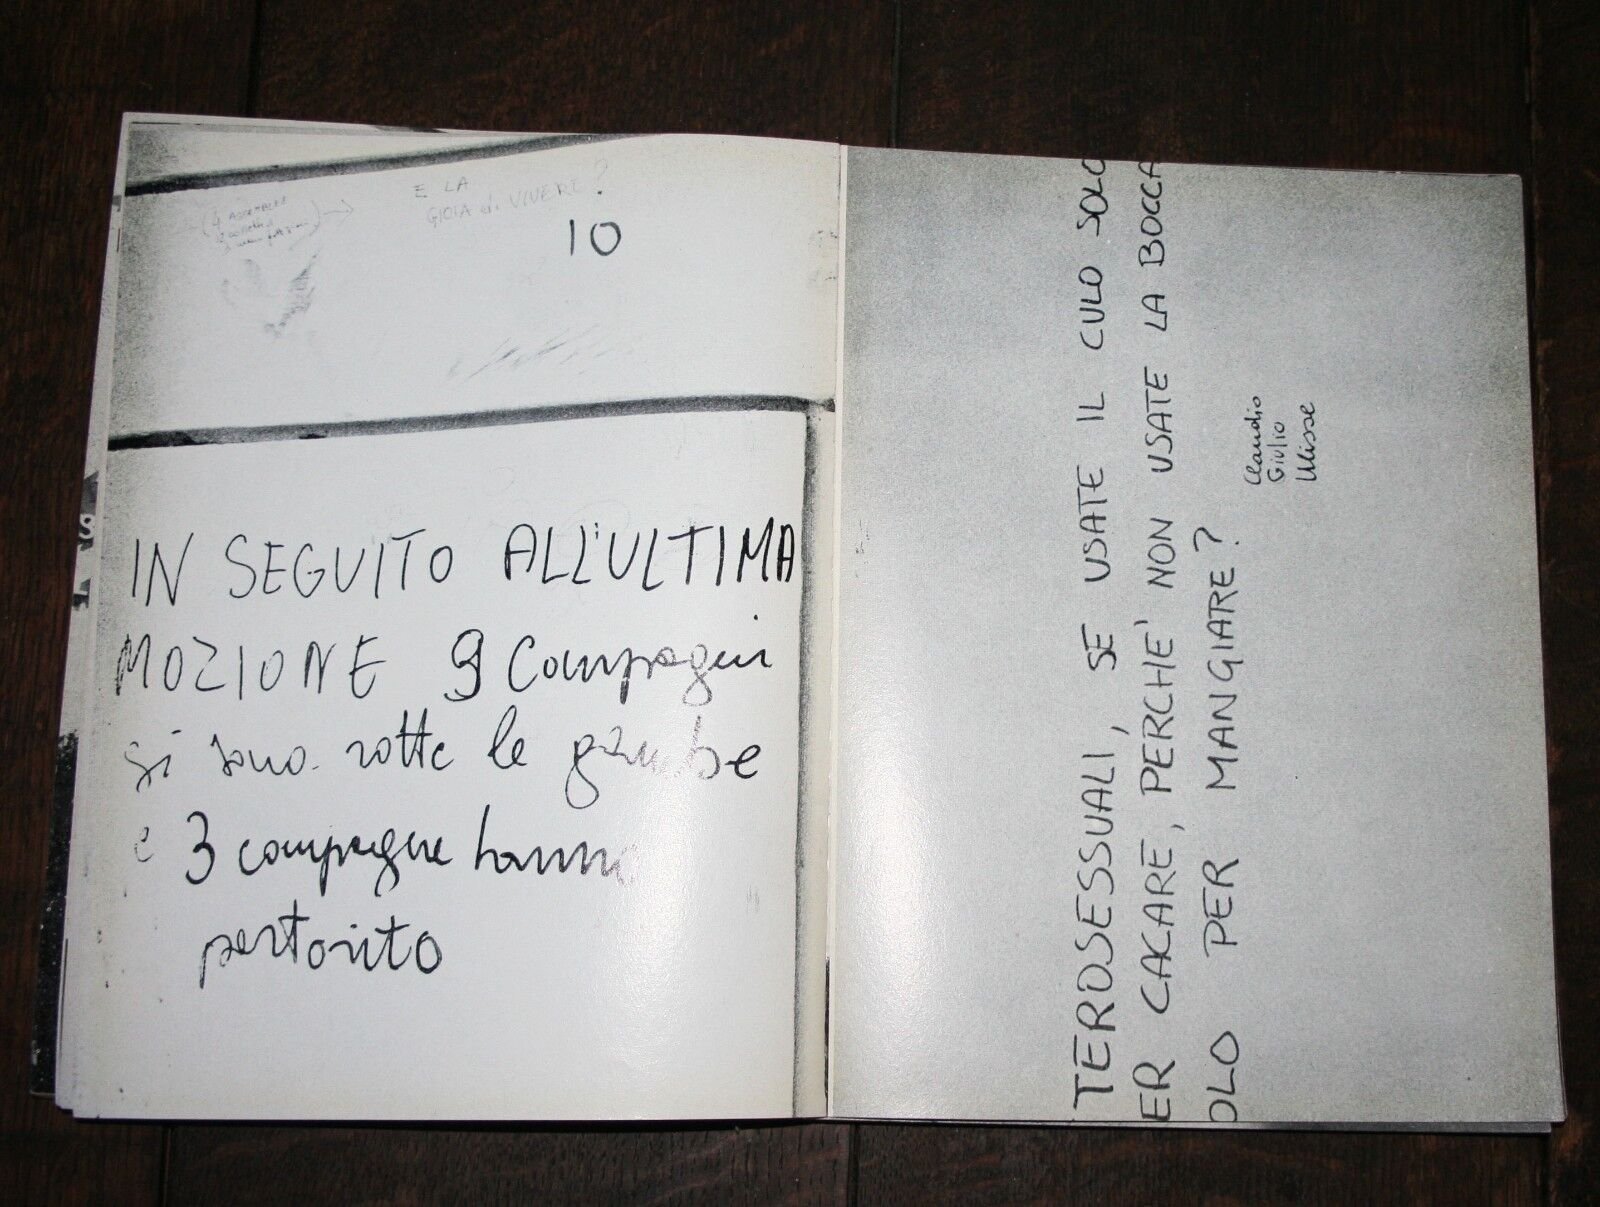 E LA
GIOIA di VIVERE?
10
IN SEGUITO ALL'ULTIMA
MOZIONE 9 compagni
si sono rotte le gambe
e 3 compagne hanno
partorito
TEROSESSUALI, SE USATE IL CULO SOLO
ER CACARE, PERCHE' NON USATE LA BOCCA
OLO PER MANGIARE?
Claudio
Giulio
Ulisse